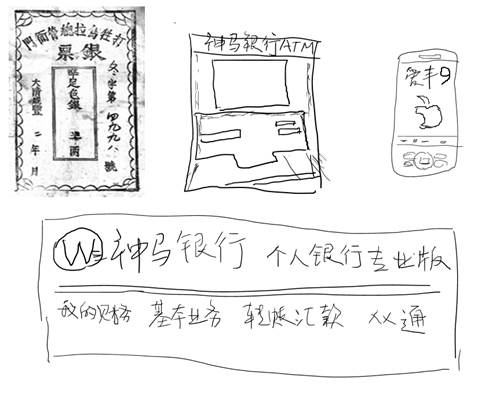 打牲烏拉總管衙門
銀票
字第四九九八號
足色銀
大清
二年月
神马银行ATM
爱丰9
W 神马银行 个人银行专业版
我的财务 基本业务 转账汇款 XX通